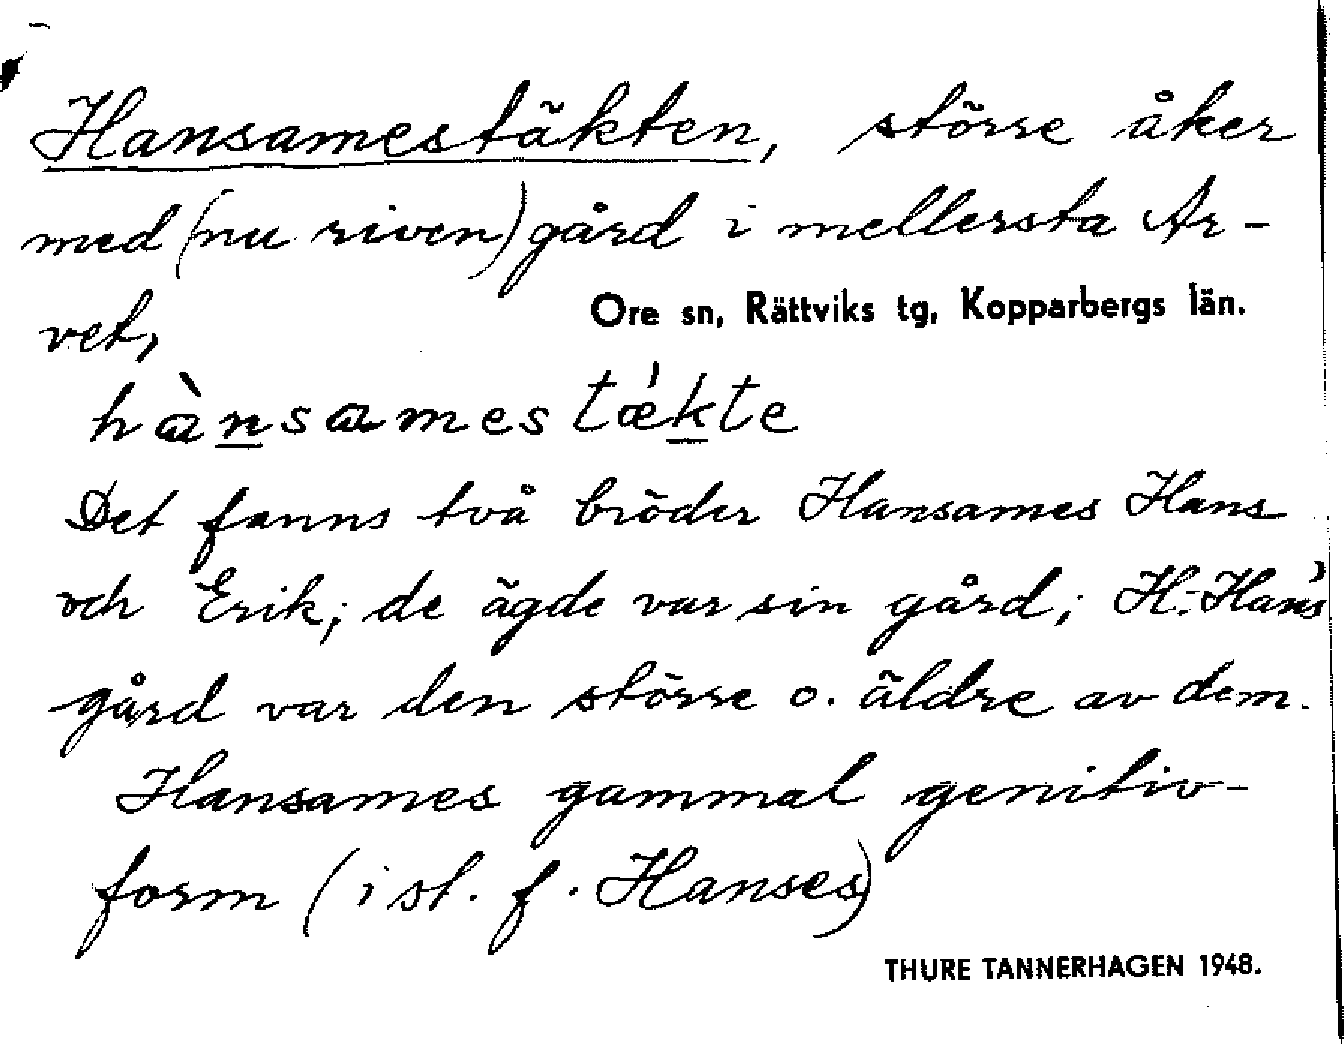 Hansamestäkten, större åker
med (nu riven) gård i mellersta Ar-
vet,
Ore sn, Rättviks tg, Kopparbergs län.
hànsamestǽkte
Det fanns två bröder Hansames Hans
och Erik; de ägde var sin gård; H.-Hans'
gård var den större o. äldre av dem.
Hansames gammal genitiv-
form (i st. f. Hanses)
THURE TANNERHAGEN 1948.